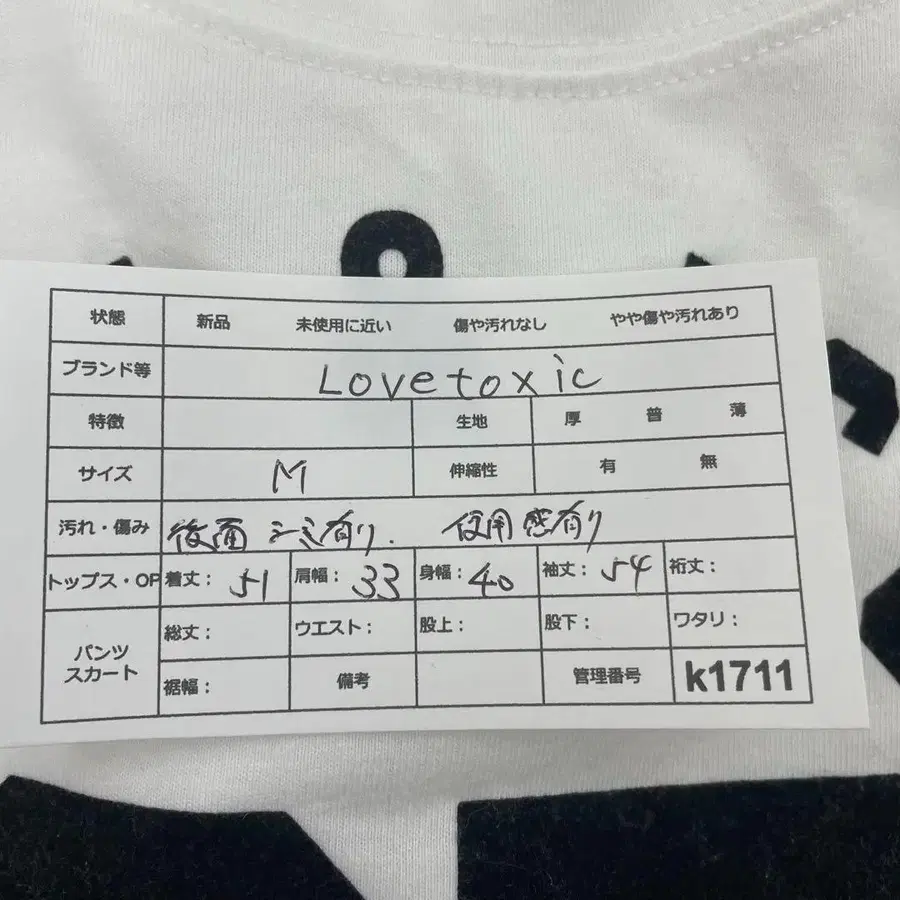 状態 新品 未使用に近い 傷や汚れなし やや傷や汚れあり
ブランド等 Lovetoxic
特徴 生地 厚 普 薄
サイズ M 伸縮性 有 無
汚れ・傷み 後面 シミ有り. 使用感有り
トップス・OP 着丈: 51 肩幅: 33 身幅: 40 袖丈: 54 裄丈:
パンツ スカート 総丈: ウエスト: 股上: 股下: ワタリ:
裾幅: 備考 管理番号 k1711